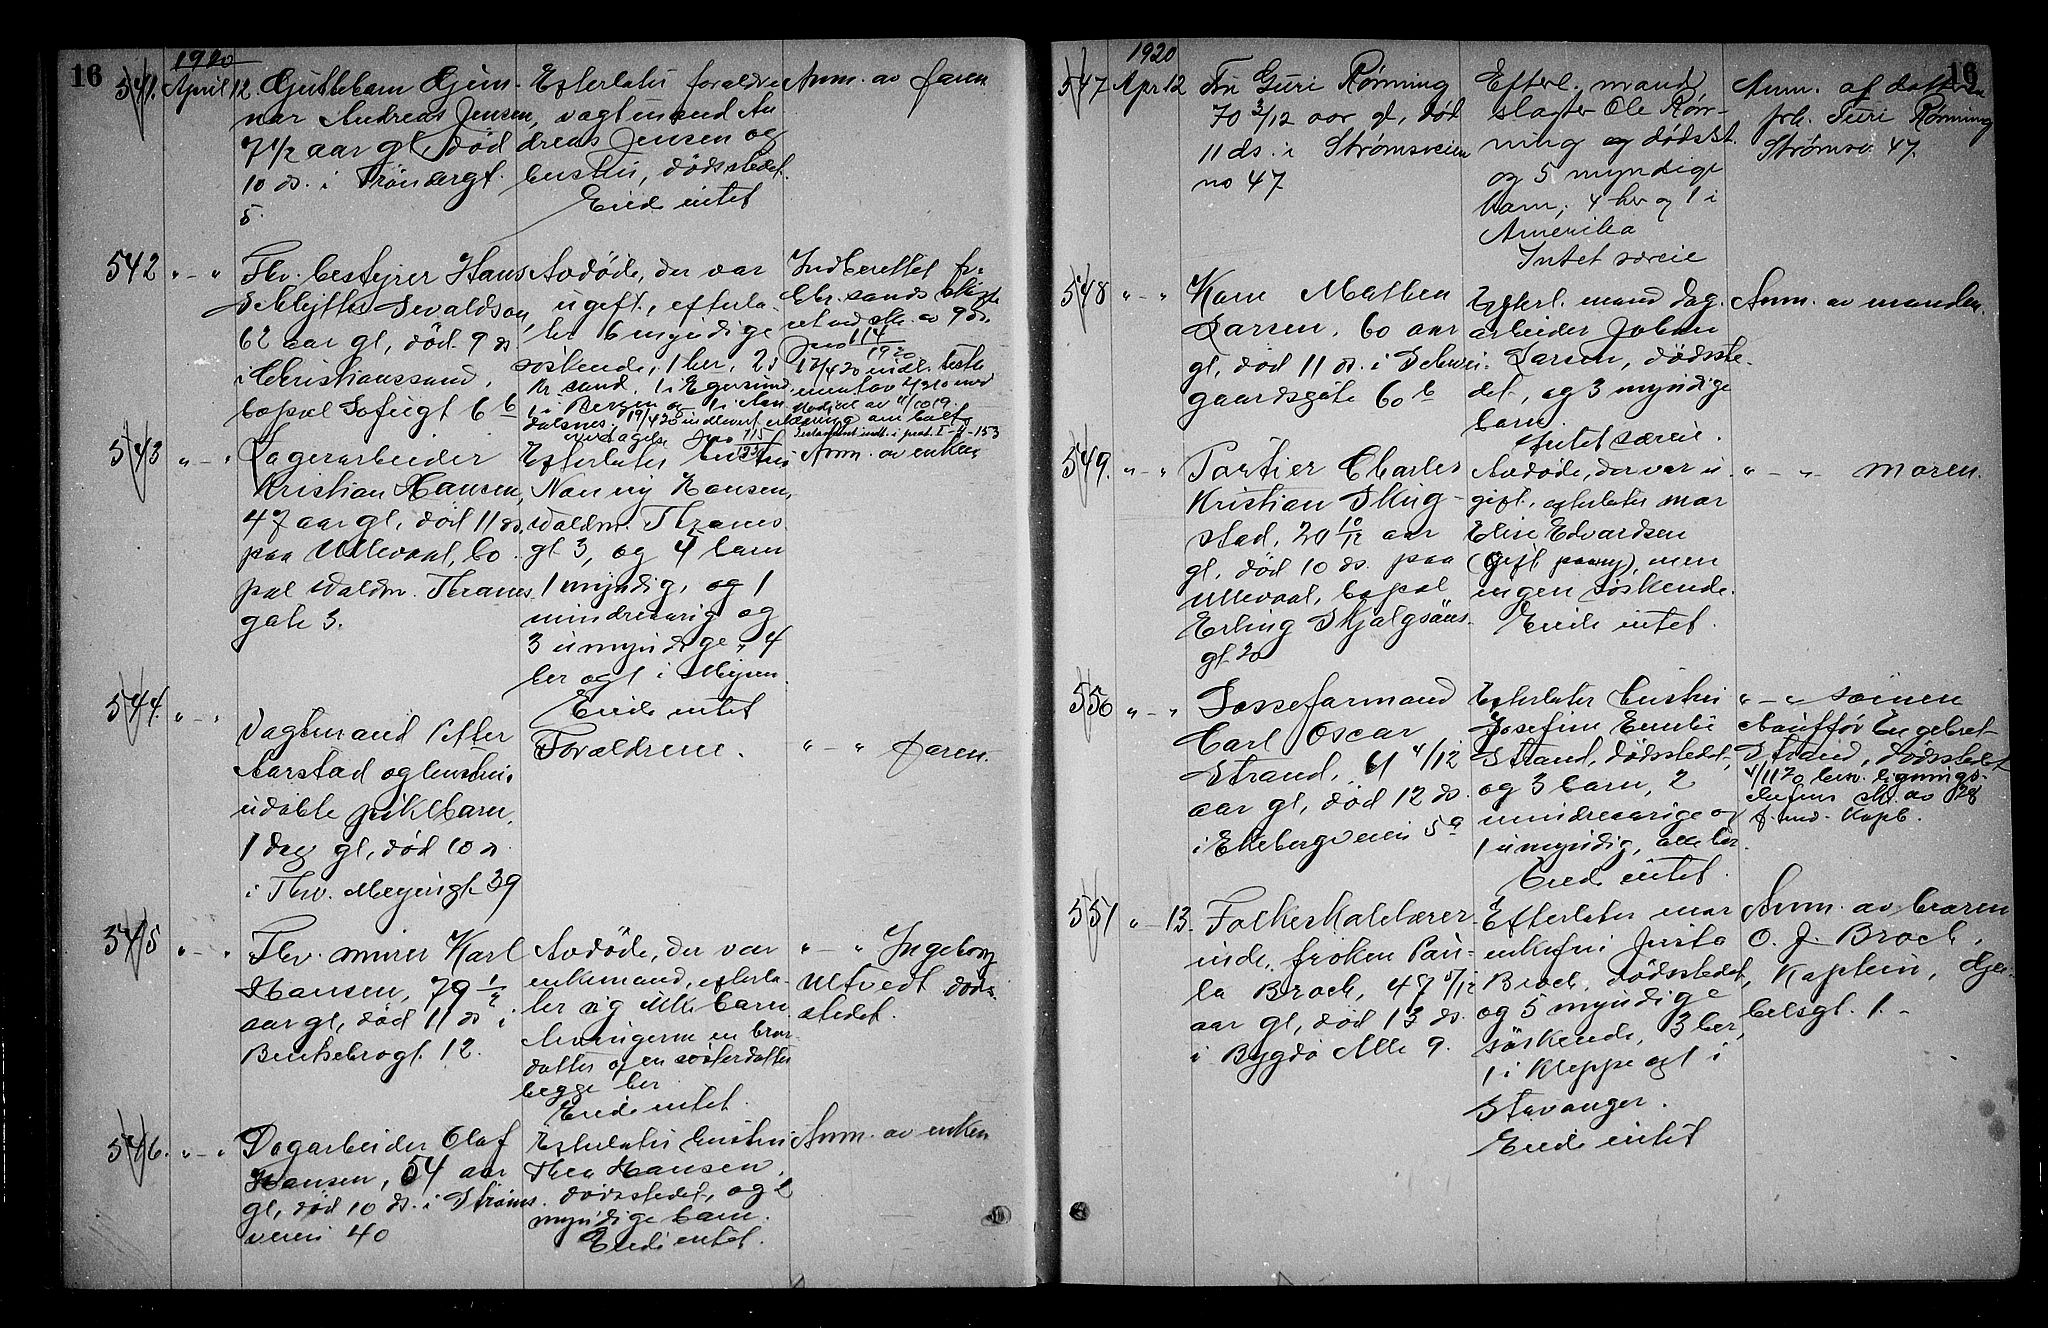 16
1920
541. April 12
Guttebarn Gun-
nar Andreas Jensen,
7 1/2 aar gl, död
10 ds. i Tröndergt.
5.
Efterlater foraldre
vagtmand An
dreas Jensen og
hustru, dødsstedet.
Eied intet
Anm. av faren
542 " - "
Fhv. bestyrer Hans
Sevaldson,
62 aar gl, död 9 ds
i Christianssand,
bopæl Sofiegt 6 b
Avdöde, der var
ugift, efterla-
ter 6 myndige
söskende, 1 her, 2 i
Kr. sand, 1 i Egersund,
1 i Bergen og 1 i Aan
dalsnes. 19/4 20 indlevert erklæring om
overtagelse Jno 115
Indberettet fr.
Chr.sands skifte
ret ved skr. av 9 ds.
Jno 114
1920
17/4 20 indl. testa
mentav 2/3 10 med
Kodicil av 11/10 19.
Testament indt. i prot. I-4-153
543 " - "
Lagerarbeider
Kristian Hansen,
47 aar gl, död 11 ds.
paa Ullevaal, bo
pæl Waldm. Thranes
gate 3.
Efterlater hustru
Nanny Hansen,
Waldm. Thranes
gt. 3, og 4 barn
1 myndig, og 1
mindreaarig og
3 umyndige, 4
her og 1 i Mysen.
Eied intet
Anm. av enken
544. " - "
Vagtmand Petter
Aarstad og hustru
udöbte pikebarn,
1 dag gl, död 10 ds.
i Thv. Meyersgt 39
Foraldrene.
" - " faren.
545 " - "
Fhv. murer Karl
Hansen, 79 1/2
aar gl, död 11 ds i
Bentsebrogt. 12.
Avdöde, der var
enkemand, efterla-
ter sig ikke barn.
Arvingerne en bror
datter og en sösterdatter
begge her
Eied intet.
" - " Ingeborg
Ultvedt döds-
stedet.
546. " - "
Dagarbeider Olaf
Hansen, 54 aar
gl, död 10 ds. i Ströms
veien 40
Efterlater hustru
Thea Hansen,
dödsstedet, og 2
myndige barn.
Eied intet.
Anm. av enken
16
1920
547 Apr. 12
Fru Guri Rönning
70 3/12 aar gl, död
11 ds. i Strömsveien
no 47
Efterl. mand,
slagter Ole Rön-
ning og dödsst.
og 5 myndige
barn, 4 her og 1 i
Amerika
Intet særeie
Anm. af datteren
frk. Turi Rönning
Strömsv 47.
548 " - "
Karn Mathea
Larsen, 60 aar
gl, död 11 ds. i Schwei-
gaardsgate 60 b
Efterl. mand Dag.
arbeider Johan
Larsen, dödsste-
det, og 3 myndige
barn
Intet særeie.
Anm. av manden.
549. " - "
Portier Charles
Kristian Skug-
stad, 20 10/12 aar
gl, död 10 ds. paa
Ullevaal, bopæl
Erling Skjalgsöns
gt. 20
Avdöde, der var u
gift, efterlater mor
Elise Edvardsen
(gift paany), men
ingen söskende.
Eied intet.
" - " moren.
550 " - "
Lossefarmand
Carl Oscar
Strand, 61 4/12
aar gl, död 12 ds.
i Ekebergveien 5 a
Efterlater hustru
Josefine Emilie
Strand, dödsstedet,
og 3 barn, 2
mindreaarige og
1 umyndig, alle her.
Eied intet.
" - " sönnen
Engebret
Strand, dödsstedet
4/11 20 lignings-
chefens skr. av
551 " - 13.
Folkeskolelærer
inde, fröken Pau-
la Broch, 47 5/12
aar gl, död 13 ds.
i Bygdö Alle 9.
Efterlater mor
enkefru Justa
Broch, dödsstedet,
og 5 myndige
söskende, 3 her,
1 i Kleppe og 1 i
Stavanger.
Eied intet
Anm. av broren
O. J. Broch,
Kaptein, Gjer-
belsgt. 1. -